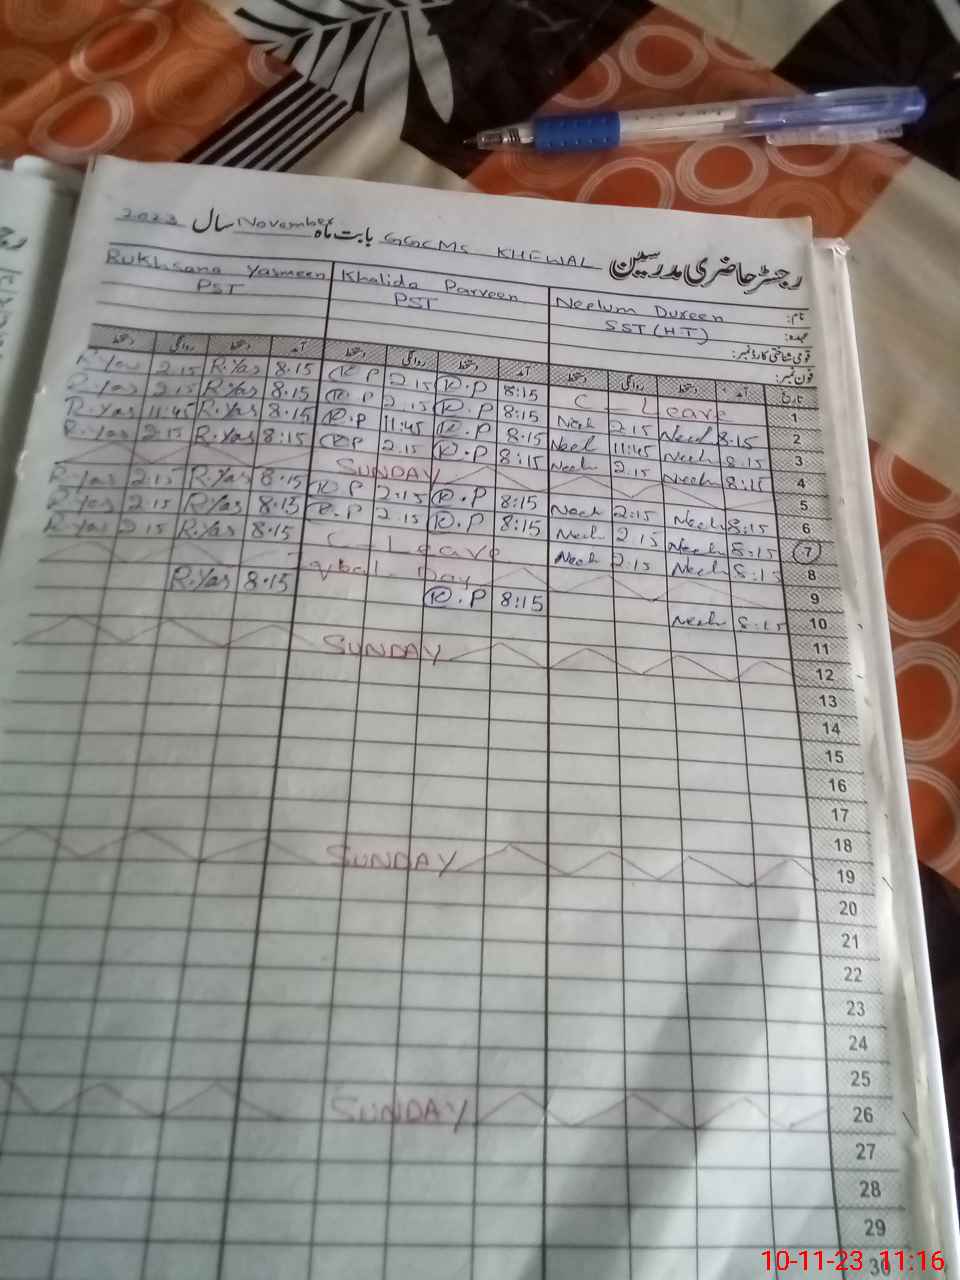 رجسٹر حاضری مدرسین GGCMS KHEWAL بابت ماہ November سال 2023
Rukhsana Yasmeen Khalida Parveen Neelum Dureen نام:
PST PST SST (H.T) عہدہ:
قومی شناختی کارڈ نمبر:
فون نمبر:
دستخط روانگی دستخط آمد دستخط روانگی دستخط آمد دستخط روانگی دستخط آمد تاریخ
R.Yas 2.15 R.Yas 8.15 K.P 2.15 K.P 8:15 C_Leave 1
R.Yas 2.15 R.Yas 8.15 K.P 2.15 K.P 8:15 Neel 2.15 Neel 8.15 2
R.Yas 11:45 R.Yas 8.15 K.P 11:45 K.P 8.15 Neel 11:45 Neel 8.15 3
R.Yas 2.15 R.Yas 8:15 K.P 2.15 K.P 8:15 Neel 2.15 Neel 8:15 4
SUNDAY 5
R.Yas 2.15 R.Yas 8.15 K.P 2:15 K.P 8:15 Neel 2:15 Neel 8:15 6
R.Yas 2.15 R.Yas 8.15 K.P 2.15 K.P 8:15 Neel 2.15 Neel 8:15 7
R.Yas 2.15 R.Yas 8.15 C_Leave Neel 2:15 Neel 8:15 8
Iqbal Day 9
R.Yas 8.15 K.P 8:15 Neel 8:15 10
11
SUNDAY 12
13
14
15
16
17
18
SUNDAY 19
20
21
22
23
24
25
SUNDAY 26
27
28
29
30
10-11-23 11:16